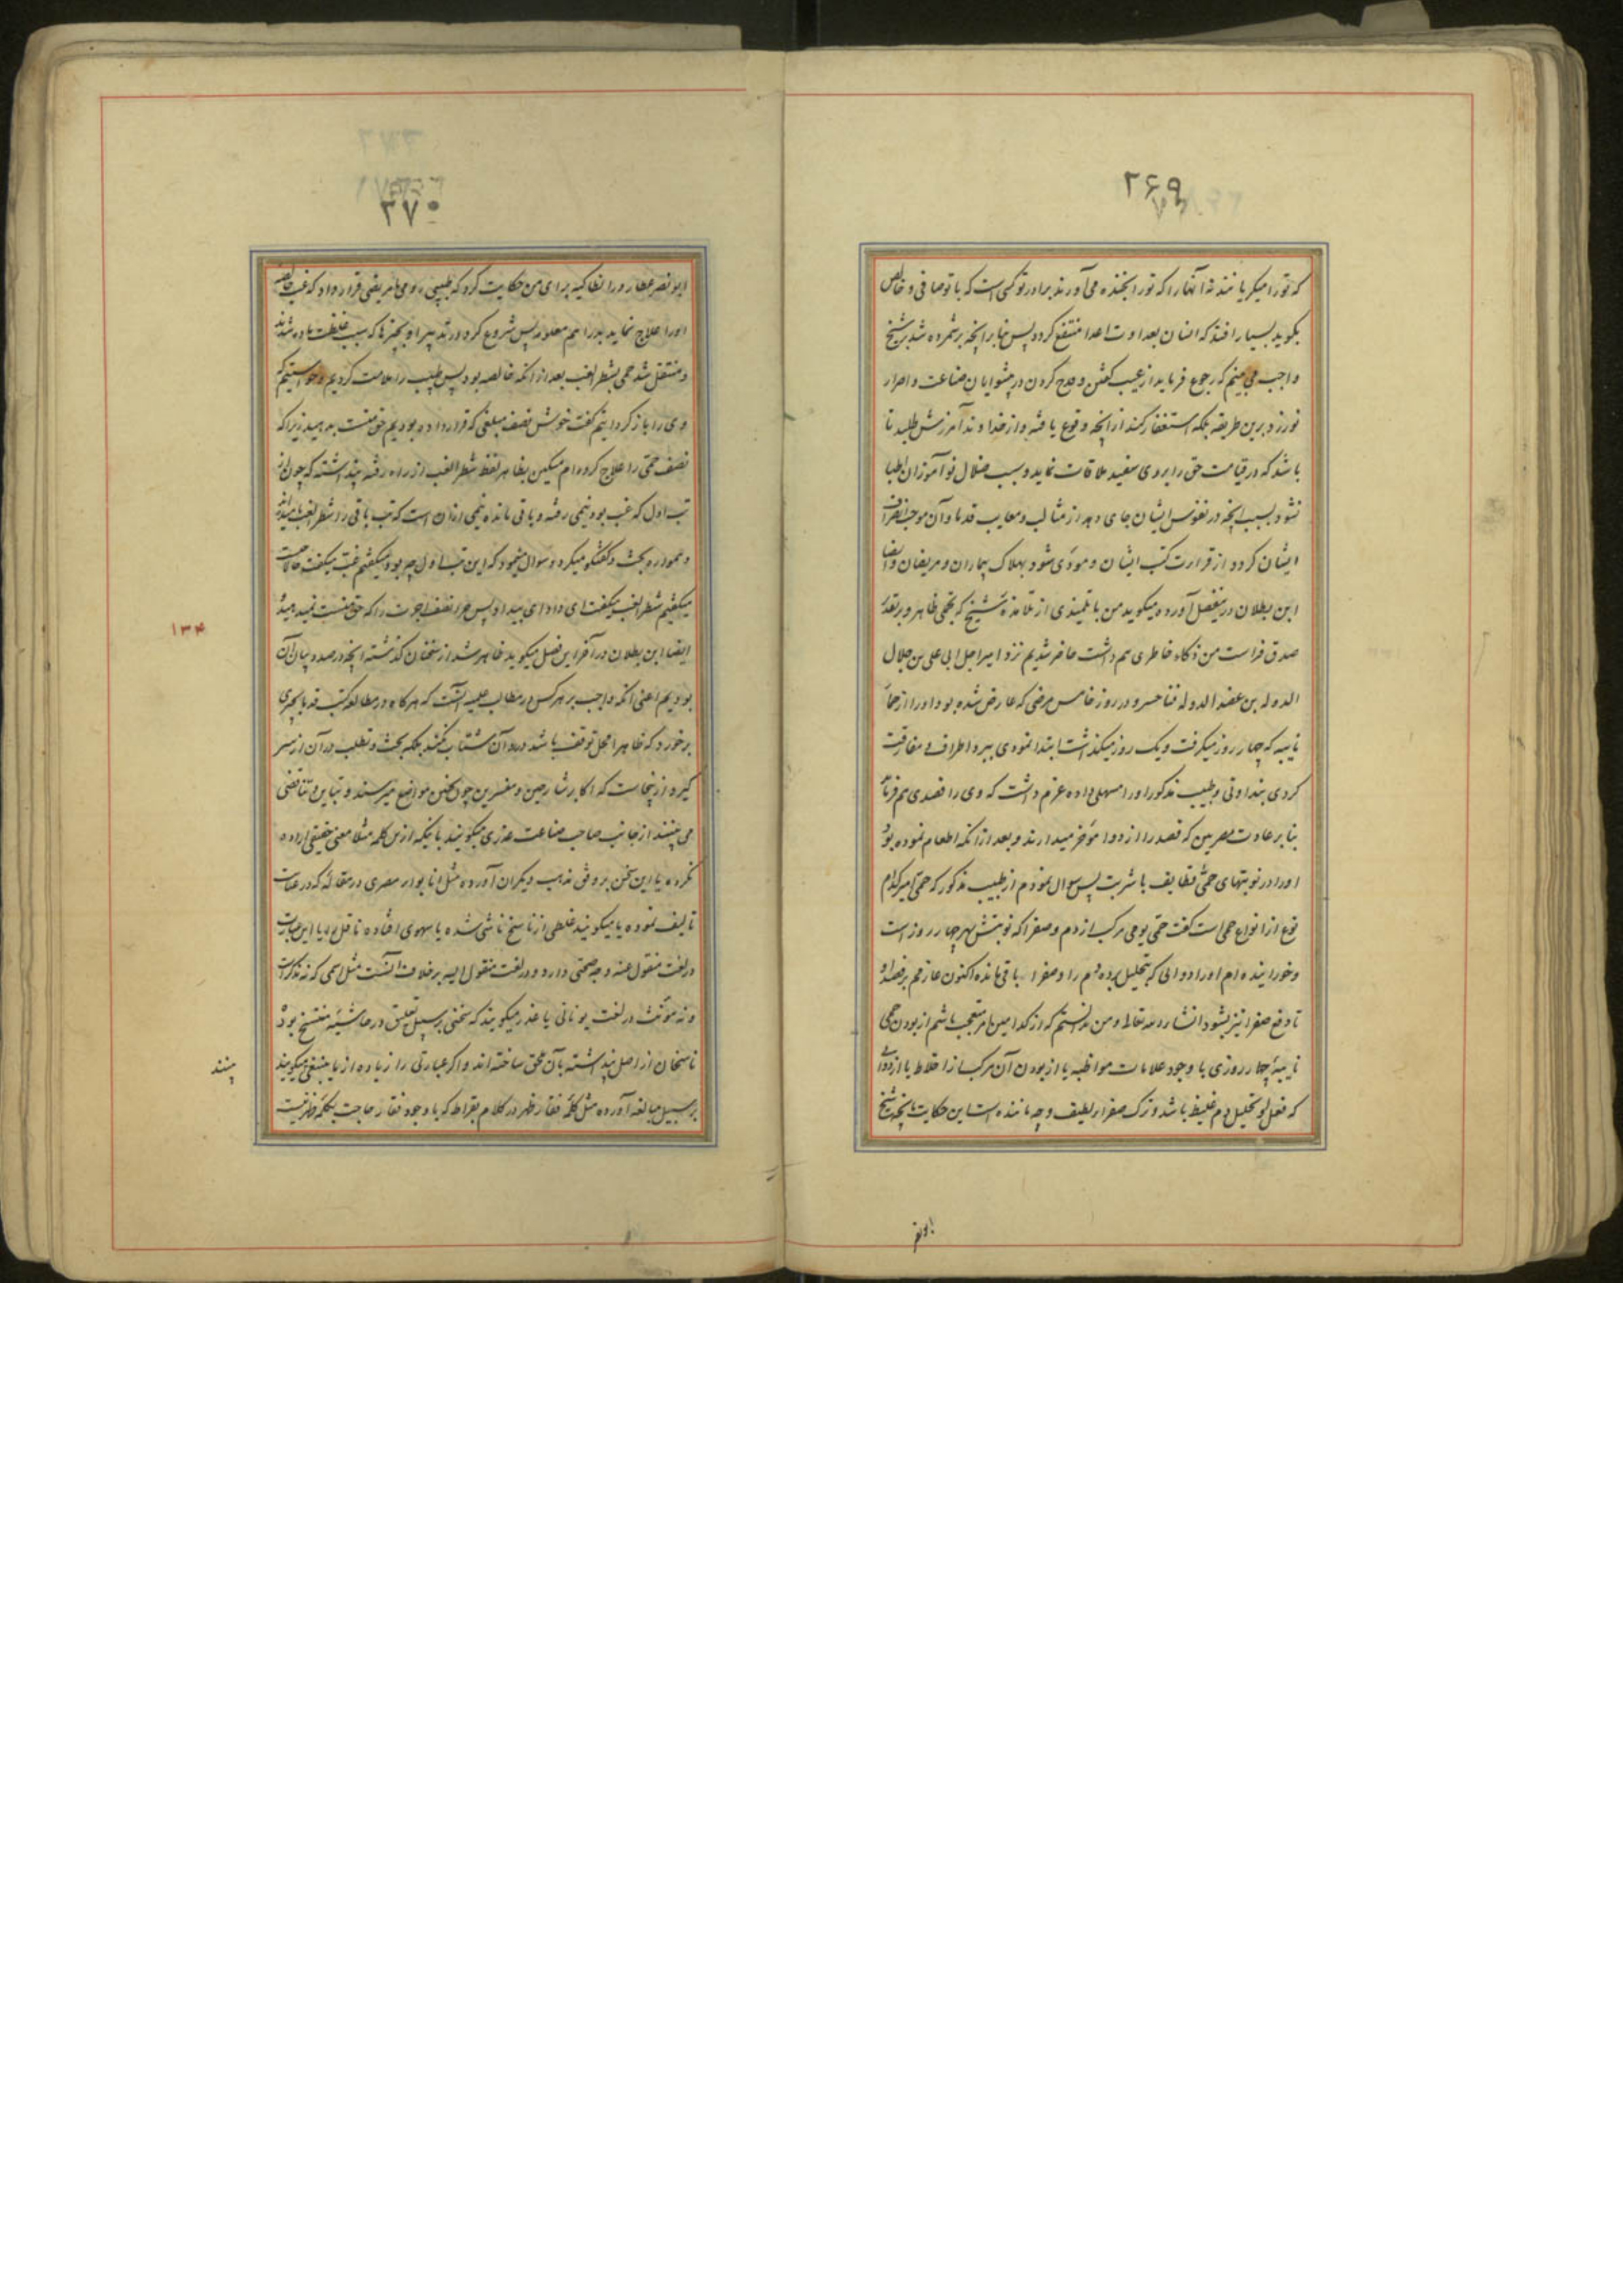 ۲۶۹
که تو را میگریانند نه آنها را که تو را بخنده می‌آورند برادر تو کسی است که با تو صافی و خالص
بگوید بسیار افتد که انسان بعداوت اعدا منتفع گردد پس بنابر آنچه بر شمرده شد بر شیخ
واجب می‌بینم که رجوع فرماید از عیب گفتن و قدح کردن در پیشوایان صناعت و اصرار
نورزد برین طریقه بلکه استغفار کند از آنچه وقوع یافته و از خداوند آمرزش طلبد تا
باشد که در قیامت حق را بروی سفید ملاقات نماید و سبب ضلال نوآموزان اطبا
نشود بسبب آنچه در نفوس ایشان جای دهد از مثالب و معایب قدما و آن موجب انحراف
ایشان گردد از قراءت کتب ایشان و مودی شود بهلاک بیماران و مریضان و ایضا
ابن بطلان درینفصل آورده میگوید من با تلمیذی از تلامذهٔ شیخ که بحمی ظاهر و بر تقدیر
صدق فراست من ذکاء خاطری هم داشت حاضر شدیم نزد امیر اجل ابی علی بن جلال
الدوله بن عضد الدوله فناخسرو در روز خامس مرضی که عارض شده بود او را از حمای
نایبه که چهار روز میگرفت و یک روز میگذشت ابتدا نمودی ببرد اطراف و مفارقت
کردی بنداوتی و طبیب مذکور او را مسهلی داده عزم داشت که وی را فصدی هم فرماید
بنا بر عادت مصریین که فصد را از دوا مؤخر میدارند و بعد از آنکه اطعام نموده بود
او را در نوبتهای حمی قطایف با شربت پس سوال نمودم از طبیب مذکور که حمی امیر کدام
نوع از انواع حمی است گفت حمی یومی مرکب از دم و صفرا که نوبتش بهر چهار روز است
و خورانیده‌ام او را دوایی که بتحلیل برده دم را و صفرا باقی مانده اکنون عازمم بر فصد او
تا دفع صفرا نیز بشود انشاء الله تعالی و من ندانستم که از کدامین امر متعجب باشم از بودن حمی
نایبهٔ چهار روزی با وجود علامات مواظبه یا از بودن آن مرکب از اخلاط یا از دوائی
که فعل او تحلیل دم غلیظ باشد و ترک صفرای لطیف و چه مانند است این حکایت بآنچه شیخ
ابونصر
۲۷۰
ابونصر عطار در انطاکیه برای من حکایت کرد که طبیبی رومی با مریضی قرار داد که غب خالصه
او را علاج نماید بدراهم معلومه پس شروع کرد در تدبیر او بچیزها که سبب غلظت ماده شدند
و منتقل شد حمی بشطر الغب بعد از آنکه خالصه بود پس طبیب را ملامت کردیم و خواستیم که
وی را باز گردانیم گفت خوش نصف مبلغی که قرار داده بودیم حق منست بدهید زیرا که
نصف حمی را علاج کرده‌ام مسکین بظاهر لفظ شطر الغب از راه رفته پنداشته که چون از
تب اول که غب بود نیمی رفته و باقی مانده نیمی ازان است که تب باقی را شطر الغب نامیده‌اند
و همواره بحث و گفتگو میکرد و سوال مینمود که این تب اول چه بود میگفتیم غب میگفت حالا چیست
میگفتیم شطر الغب میگفت ای داد ای بیداد پس چرا نصف اجرت را که حق منست نمیدهید
ایضا ابن بطلان در آخر این فصل میگوید ظاهر شد از سخنان گذشته آنچه در صدد بیان آن
بودیم اعنی آنکه واجب بر هر کس در مطالب علمیه آنست که هر گاه در مطالعه کتب قدما بچیزی
برخورد که ظاهرا محل توقف باشد در رد آن شتاب نکند بلکه بحث و تطلب در آن از سر
گیرد ازینجاست که اکابر شارحین و مفسرین چون بچنین مواضع میرسند و تباین و تناقضی
می‌بینند از جانب صاحب صناعت عذری میگویند باینکه ازین کلمه مثلا معنی حقیقی اراده
نکرده یا این سخن بر وفق مذهب دیگران آورده مثل انابوار مصری در مقاله که در عبارت
تالیف نموده یا میگویند غلطی از ناسخ ناشی شده یا سهوی افتاده ناقل را یا این عبارت
در لغت منقول عنه وجه صحتی دارد و در لغت منقول الیه برخلاف آنست مثل اسمی که نه مذکر است
و نه مؤنث در لغت یونانی یا عذر میگویند که سخنی بر سبیل تعلیق در حاشیهٔ منتسخ بود
ناسخان از اصل پنداشته بآن ملحق ساخته‌اند و اگر عبارتی را زیاده از ما ینبغی میگویند
بر سبیل مبالغه آورده مثل کلمهٔ فقار ظهر در کلام بقراط که با وجود فقار حاجت بکلمه ظهر نیست
۱۳۴
بینند